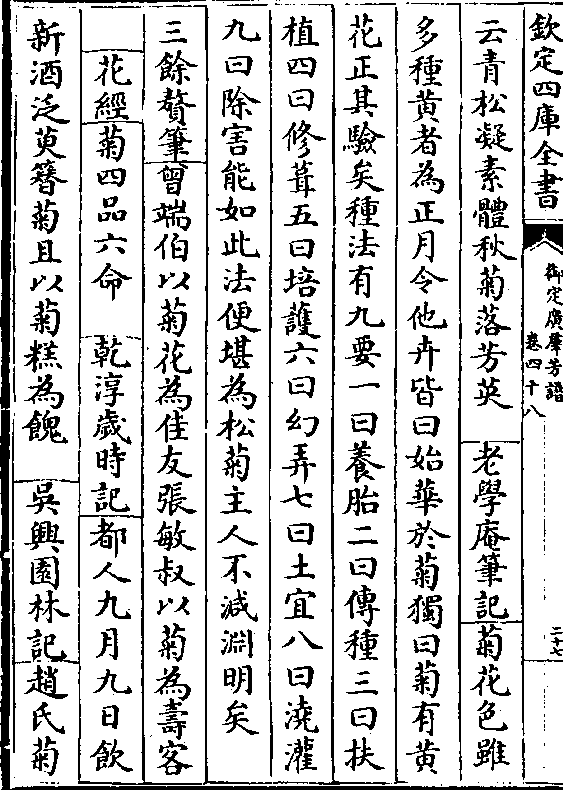 欽定四庫全書
御定廣羣芳譜
卷四十八
二十七
云青松凝素體秋菊落芳英　老學庵筆記菊花色雖
多種黄者為正月令他卉皆曰始華於菊獨曰菊有黄
花正其驗矣種法有九要一曰養胎二曰傳種三曰扶
植四曰修葺五曰培護六曰幻弄七曰土宜八曰澆灌
九曰除害能如此法便堪為松菊主人不減淵明矣
三餘贅筆曾端伯以菊花為佳友張敏叔以菊為壽客
花經菊四品六命　乾淳歲時記都人九月九日飲
新酒泛萸簪菊且以菊糕為餽　吳興園林記趙氏菊